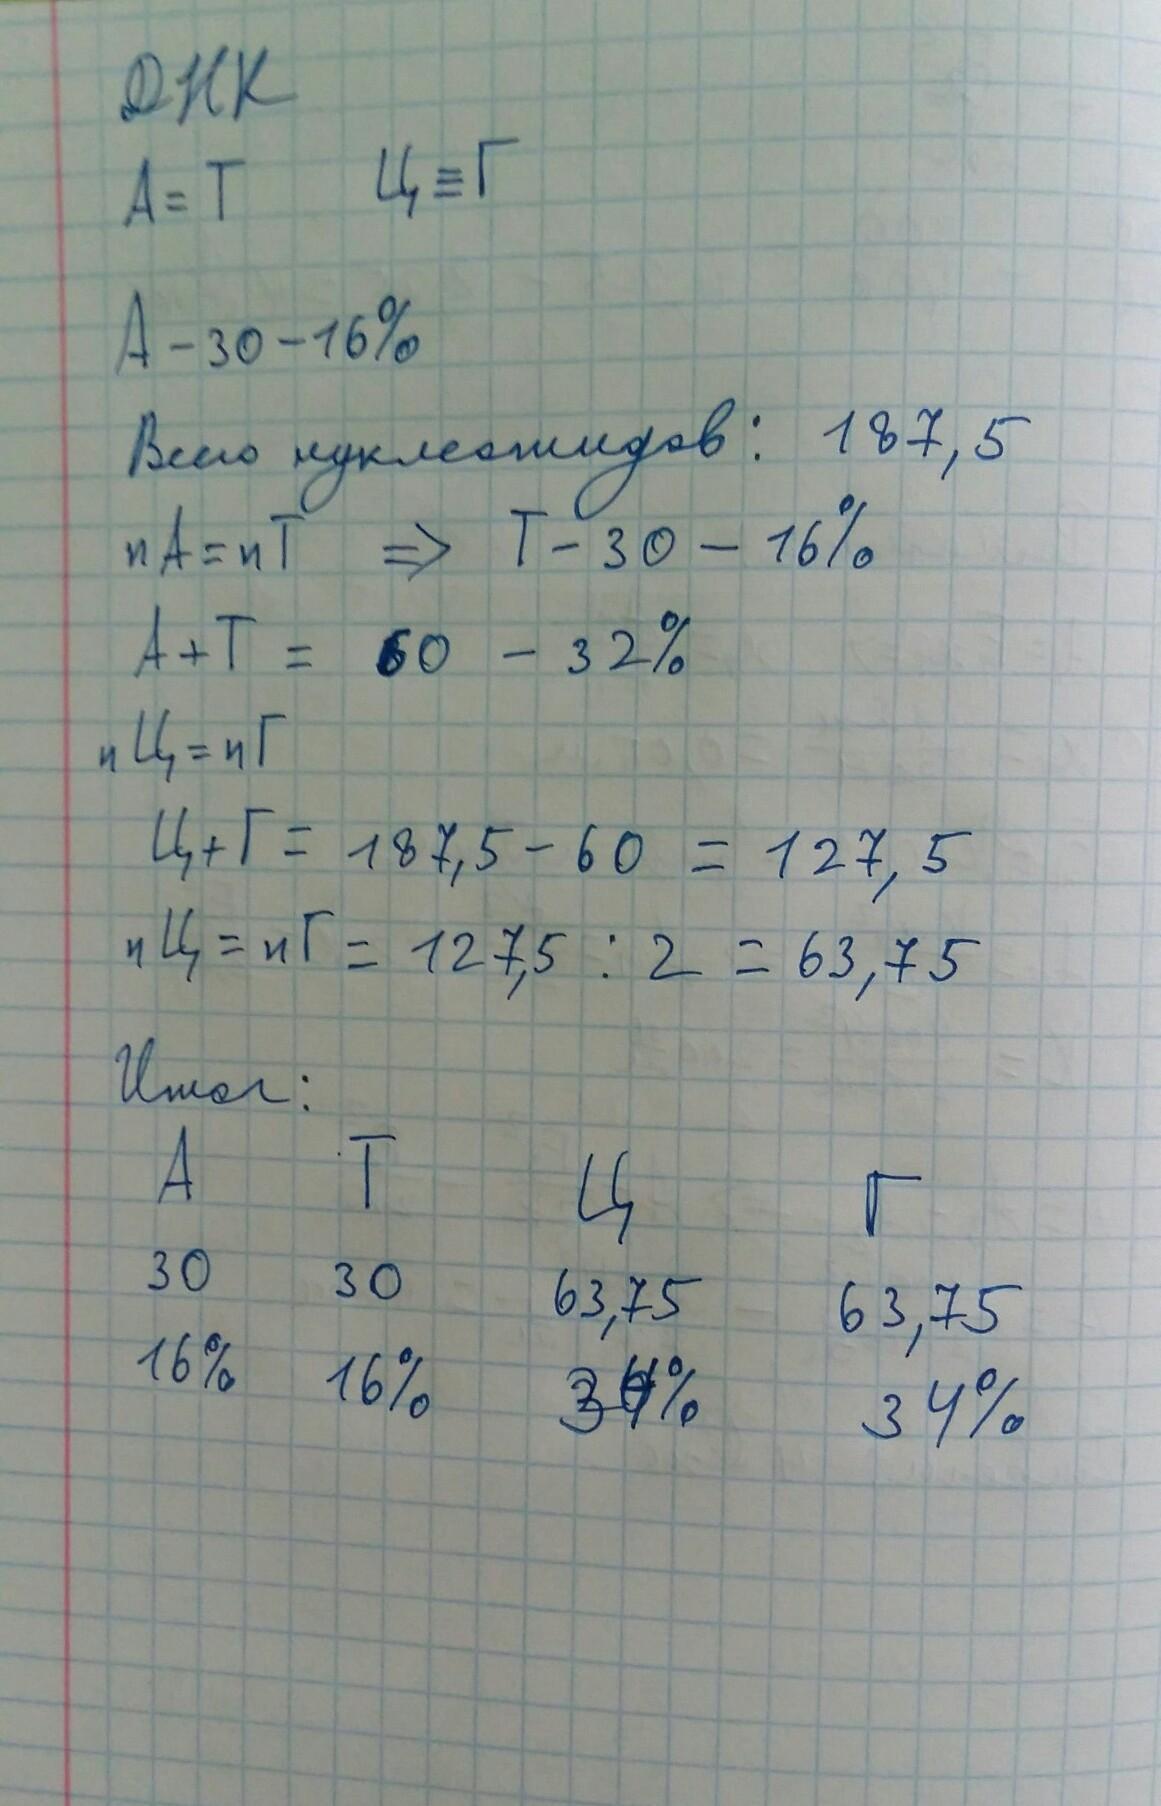 ДНК
А=Т Ц≡Г
А-30-16%
Всего нуклеотидов: 187,5
nА=nТ => Т-30-16%
А+Т = 60 - 32%
nЦ=nГ
Ц+Г = 187,5-60 = 127,5
nЦ=nГ = 127,5 : 2 = 63,75
Итог:
А Т Ц Г
30 30 63,75 63,75
16% 16% 34% 34%